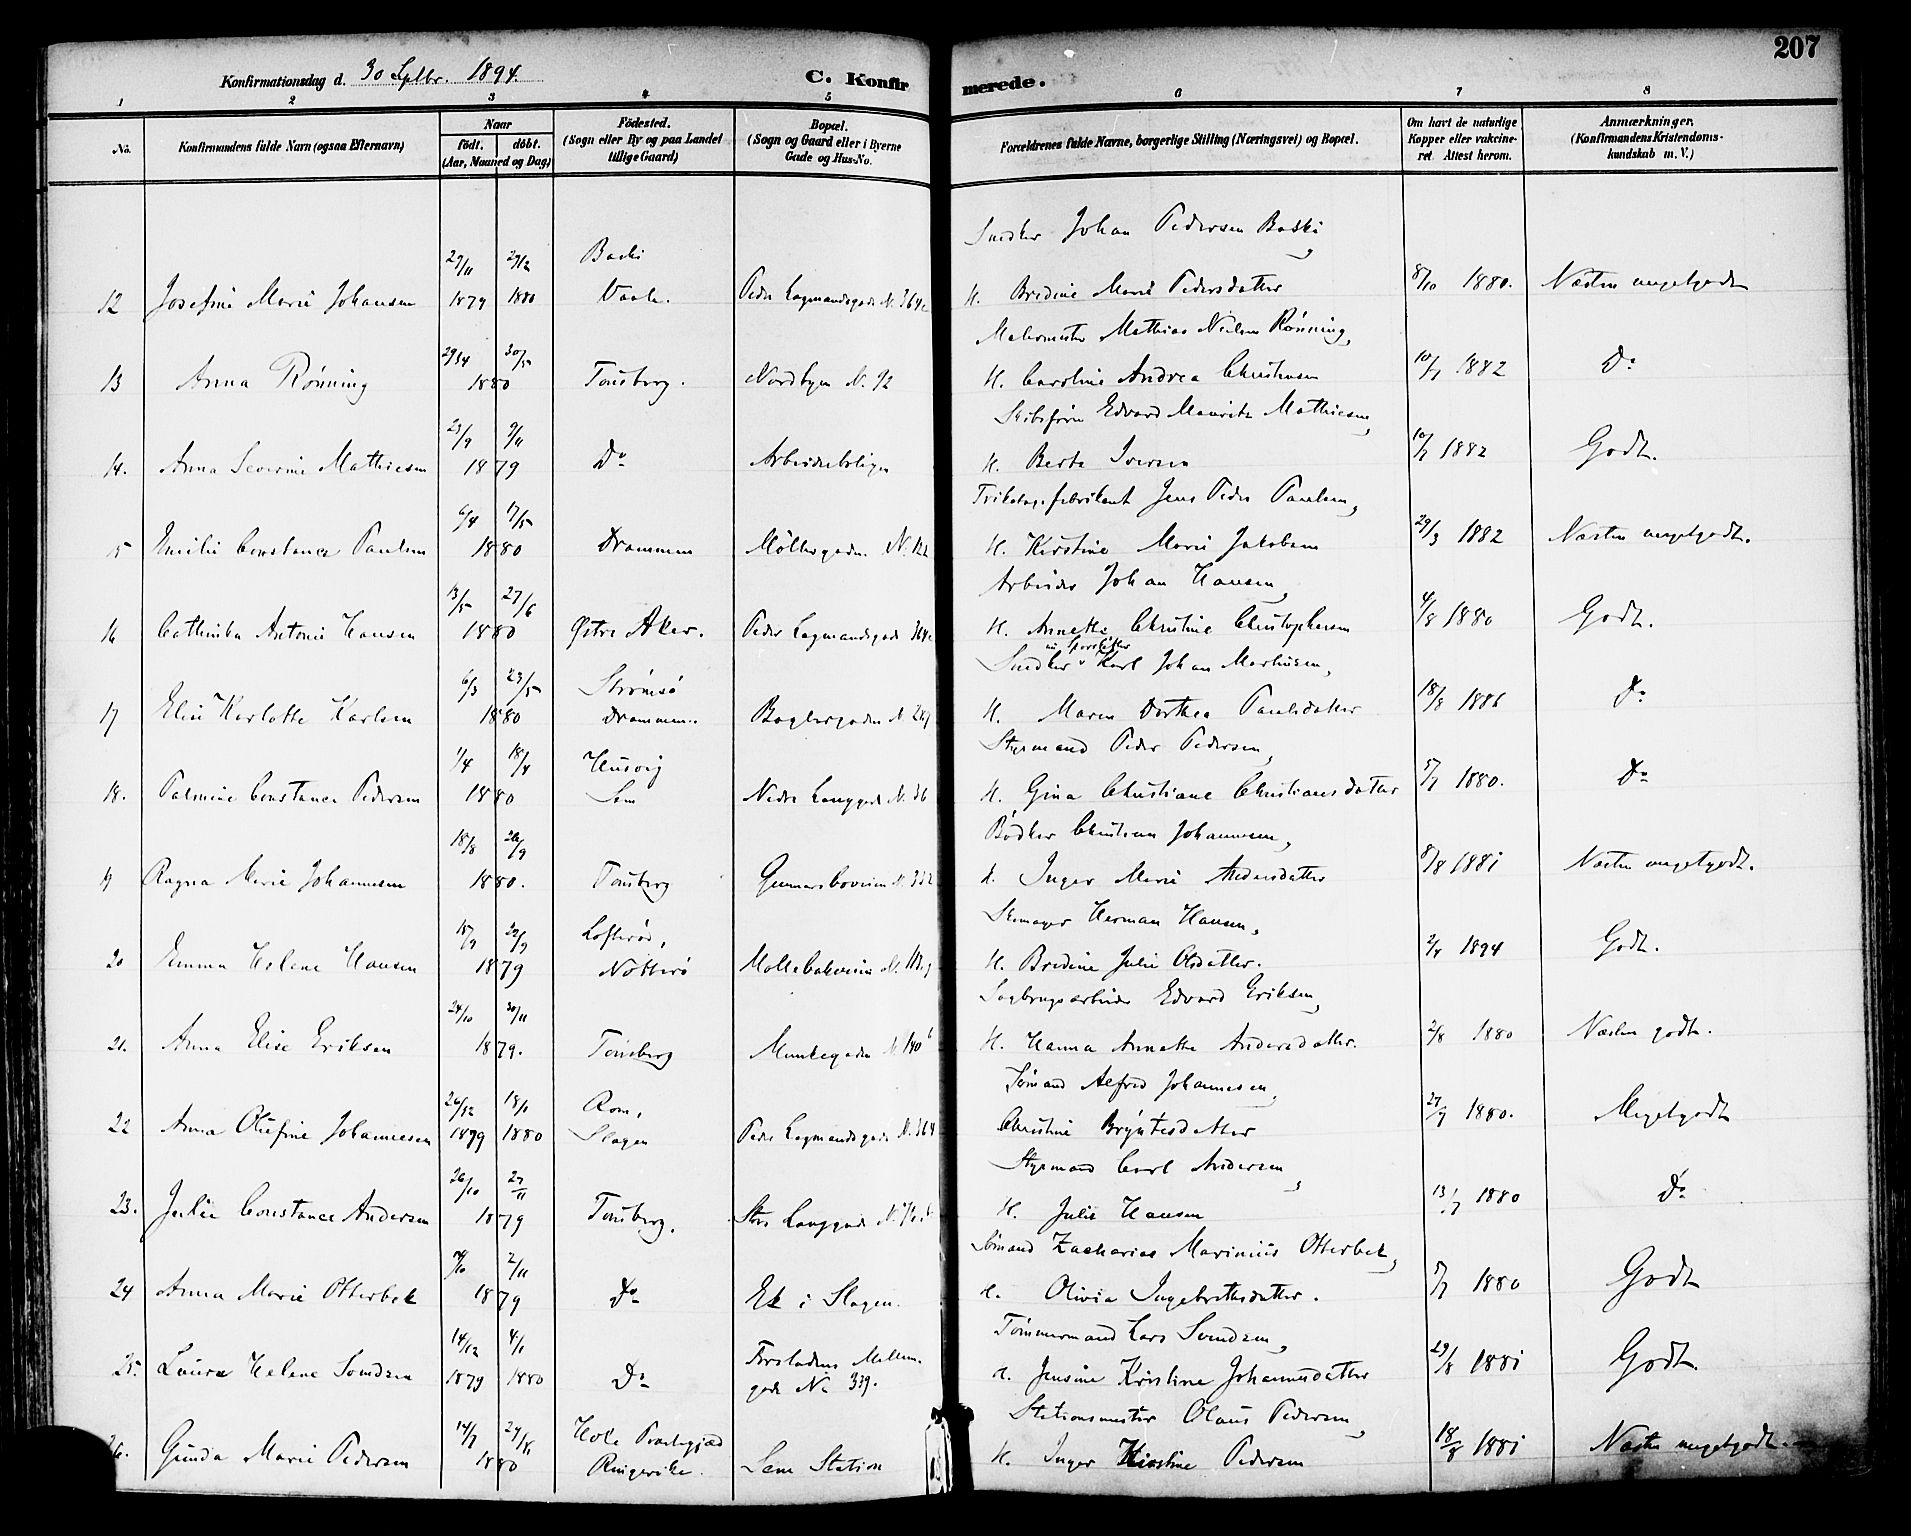 207
Konfirmationsdag d. 30 Septbr. 1894.
C. Konfirmerede.
1 2 3 4 5 6 7 8
No. Konfirmandens fulde Navn (ogsaa Efternavn) Naar født. døbt. (Aar, Maaned og Dag) Födested. (Sogn eller By og paa Landet tillige Gaard) Bopæl. (Sogn og Gaard eller i Byerne Gade og Hus-No. Forældrenes fulde Navne, borgerlige Stilling (Næringsvei) og Bopæl. Om havt de naturlige Kopper eller vaccineret. Attest herom. Anmærkninger. (Konfirmandens Kristendomskundskab m. V.)
Snedker Johan Pedersen
29/11 29/2
12 Josefine Marie Johansen 1879 1880 Vaale. Peder Lagmandsgade N. 364 H. Bredine Marie Pedersdatter 8/10 1880. Næsten megetgodt
Malermester Mathias Nielsen Rønning,
30/5
13 Anna Rønning 1880 Tønsberg. Nordbyen N. 92 H. Caroline Andrea Christensen 1882 Do
Skibsfører Edvard Mauritz Mathiesen,
23/9 9/11
14. Anna Severine Mathiesen 1879 Do Arbeiderboliger H. Berte Iversen 1882 Godt.
Trikotagefabrikant Jens Peder Paulsen,
6/4 17/5
15 Emilie Constance Paulsen 1880 Drammen Møllergaden N. 122 H. Kirstine Marie Jakobsen 29/3 1882 Næsten megetgodt.
Arbeider Johan Hansen,
13/5 27/6
16 Cathinka Antonie Hansen 1880 Østre Aker. Peder Lagmandsgade 364 H. Annette Christine Christophersen 4/8 1880 Godt.
Snedker Karl Johan Martinsen,
6/3 23/5 Strømsø
17 Elise Karlotte Karlsen 1880 Drammen. Baglergaden N. H. Maren Dorthea Paulsdatter 18/8 1886 Do
Styrmand Peder Pedersen,
1/4 18/4 Husvig
18. Palmine Constance Pedersen 1880 Sem Nedre Langgade N. 36 H. Gina Christiane Christiansdatter 5/7 1880. Do
Bødker Christian Johannesen,
18/8 26/9
19 Ragna Marie Johannesen 1880. Tønsberg Gunnarsboveien N. 322 H. Inger Marie Andersdatter 8/8 1881 Næsten megetgodt.
Herman Hansen,
Lofterød,
20 Emma Helene Hansen 1879 Nøtterø Møllebakveien N. H. Bredine Julie Olsdatter. 1894 Godt.
Sagbrugsarbeider Edvard Eriksen,
24/10 30/11
21. Anna Elise Eriksen 1879. Tønsberg Munkegaden N. 140 b H. Hanna Annette Andersdatter. 2/8 1880 Næsten godt.
Sømand Alfred Johannesen,
26/12 18/1 Rom,
22 Anna Olufine Johannesen 1879 1880 Slagen Peder Lagmandsgade N. 364 Christine Bryntesdatter 27/7 1880. Megetgodt
Styrmand Carl Andersen,
26/10 27/11
23. Julie Constance Andersen 1879 Tønsberg. Store Langgade N. H. Julie Hansen 13/7 1880 Do
Sømand Zacharias Marinius Otterbek,
2/11
24 Anna Marie Otterbek 1879 Do Ek i Slagen. H. Olivia Ingebrethsdatter. 5/7 1880 Godt
Tømmermand Lars Svendsen,
14/12 4/1 Farstadens Mellem-
25. Laura Helene Svendsen 1879 1880 Do gade No 339. H. Jensine Kristine Johannesdatter 29/8 1881 Godt.
Stationsmester Olaus Pedersen,
14/7 Hole Præstegjæld
26. Gunda Marie Pedersen 1880 Ringerike. Sem Station H. Inger Kirstine Pedersen 18/8 1881 Næsten megetgodt.